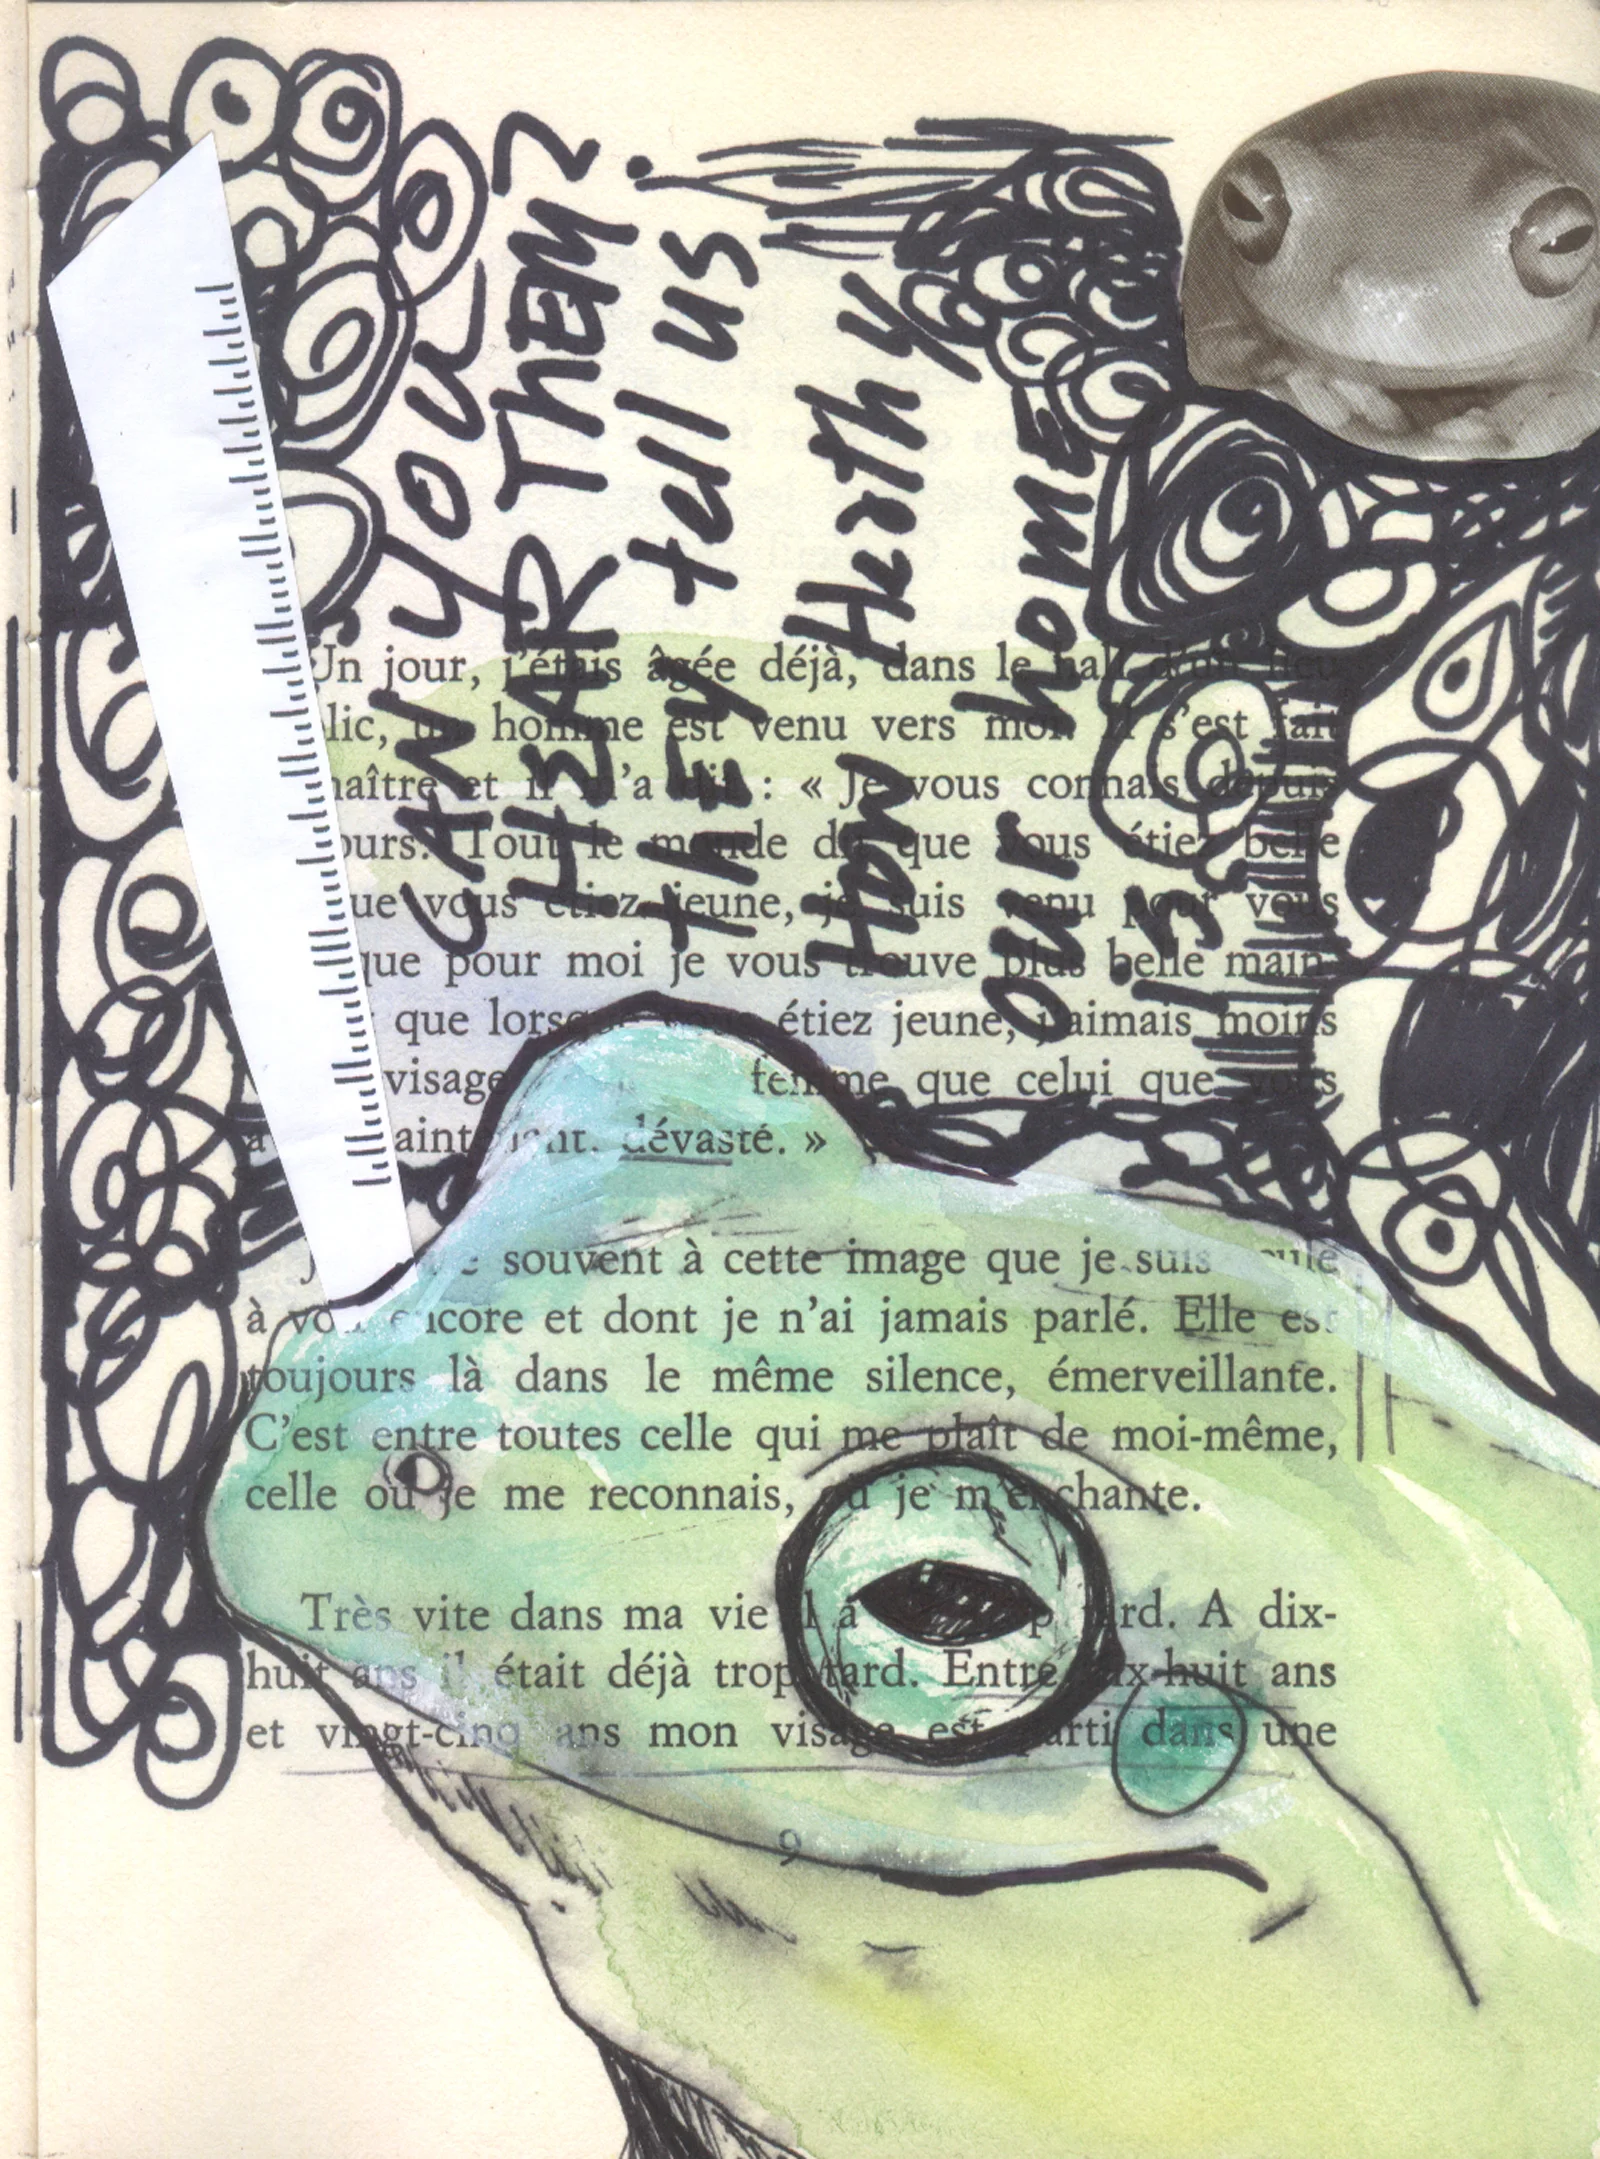 CAN YOU
HEAR THEM?
they tell us
How Hearthy
our home
is
Un jour, j'étais âgée déjà, dans le hall d'un lieu
lic, un homme est venu vers moi. Il s'est fait
naître et il m'a dit : « Je vous connais depuis
ours. Tout le monde dit que vous étiez belle
ue vous étiez jeune, je suis venu pour vous
que pour moi je vous trouve plus belle main-
que lorsque vous étiez jeune, j'aimais moins
visage femme que celui que vous
a aintenant, dévasté. »
souvent à cette image que je suis seule
à voir encore et dont je n'ai jamais parlé. Elle est
toujours là dans le même silence, émerveillante.
C'est entre toutes celle qui me plaît de moi-même,
celle où je me reconnais, où je m'enchante.
Très vite dans ma vie il a tard. A dix-
huit ans il était déjà trop tard. Entre dix-huit ans
et vingt-cinq ans mon visage est parti dans une
9